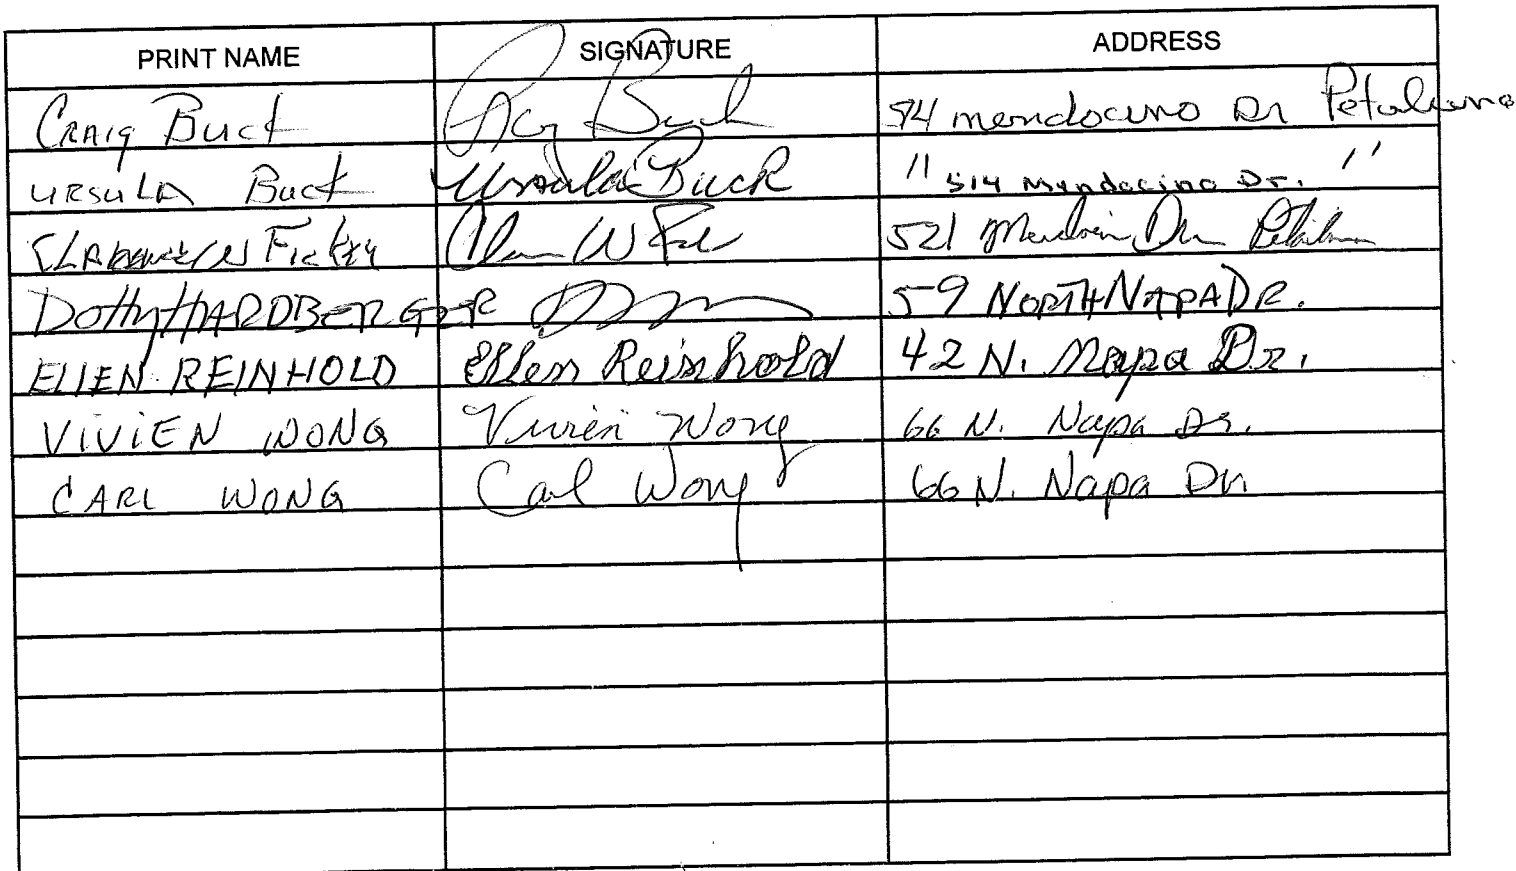 PRINT NAME SIGNATURE ADDRESS
CRAIG Buck Buck 514 mendocino Dr Petaluma
URSULA Buck Ursula Buck " 514 Mendocino Dr. "
W 521 Dr Petaluma
Dotty HARDBERGER 59 NORTH NAPA DR.
ELLEN REINHOLD Ellen Reinhold 42 N. Napa Dr.
VIVIEN WONG Vivien Wong 66 N. Napa Dr.
CARL WONG Carl Wong 66 N. Napa Dr